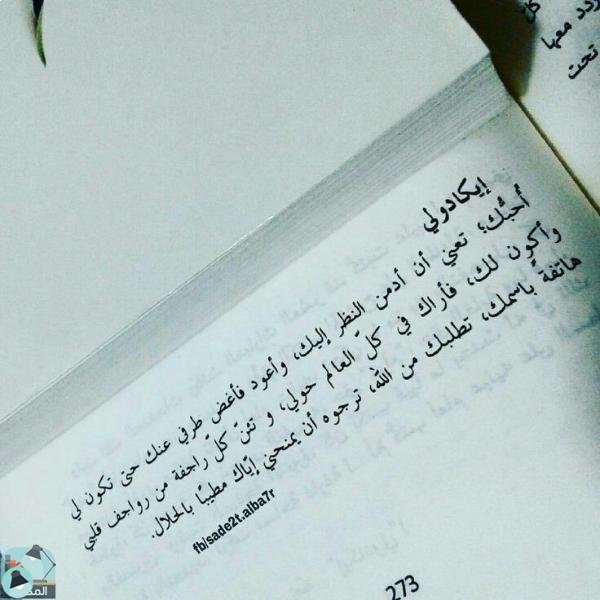 إيكادولي
أُحبُّك؛ تعني أن أدمن النظر إليك، وأعود فأغض طرفي عنك حتى تكون لي
وأكون لك، فأراك في كلّ العالم حولي، و تئنّ كلّ راجفة من رواجف قلبي
هاتفةً باسمك، تطلبك من الله، ترجوه أن يمنحني إيّاك مطيبًا بالحلال.
fb|sade2t.alba7r
273
كلّ
معها
تحت